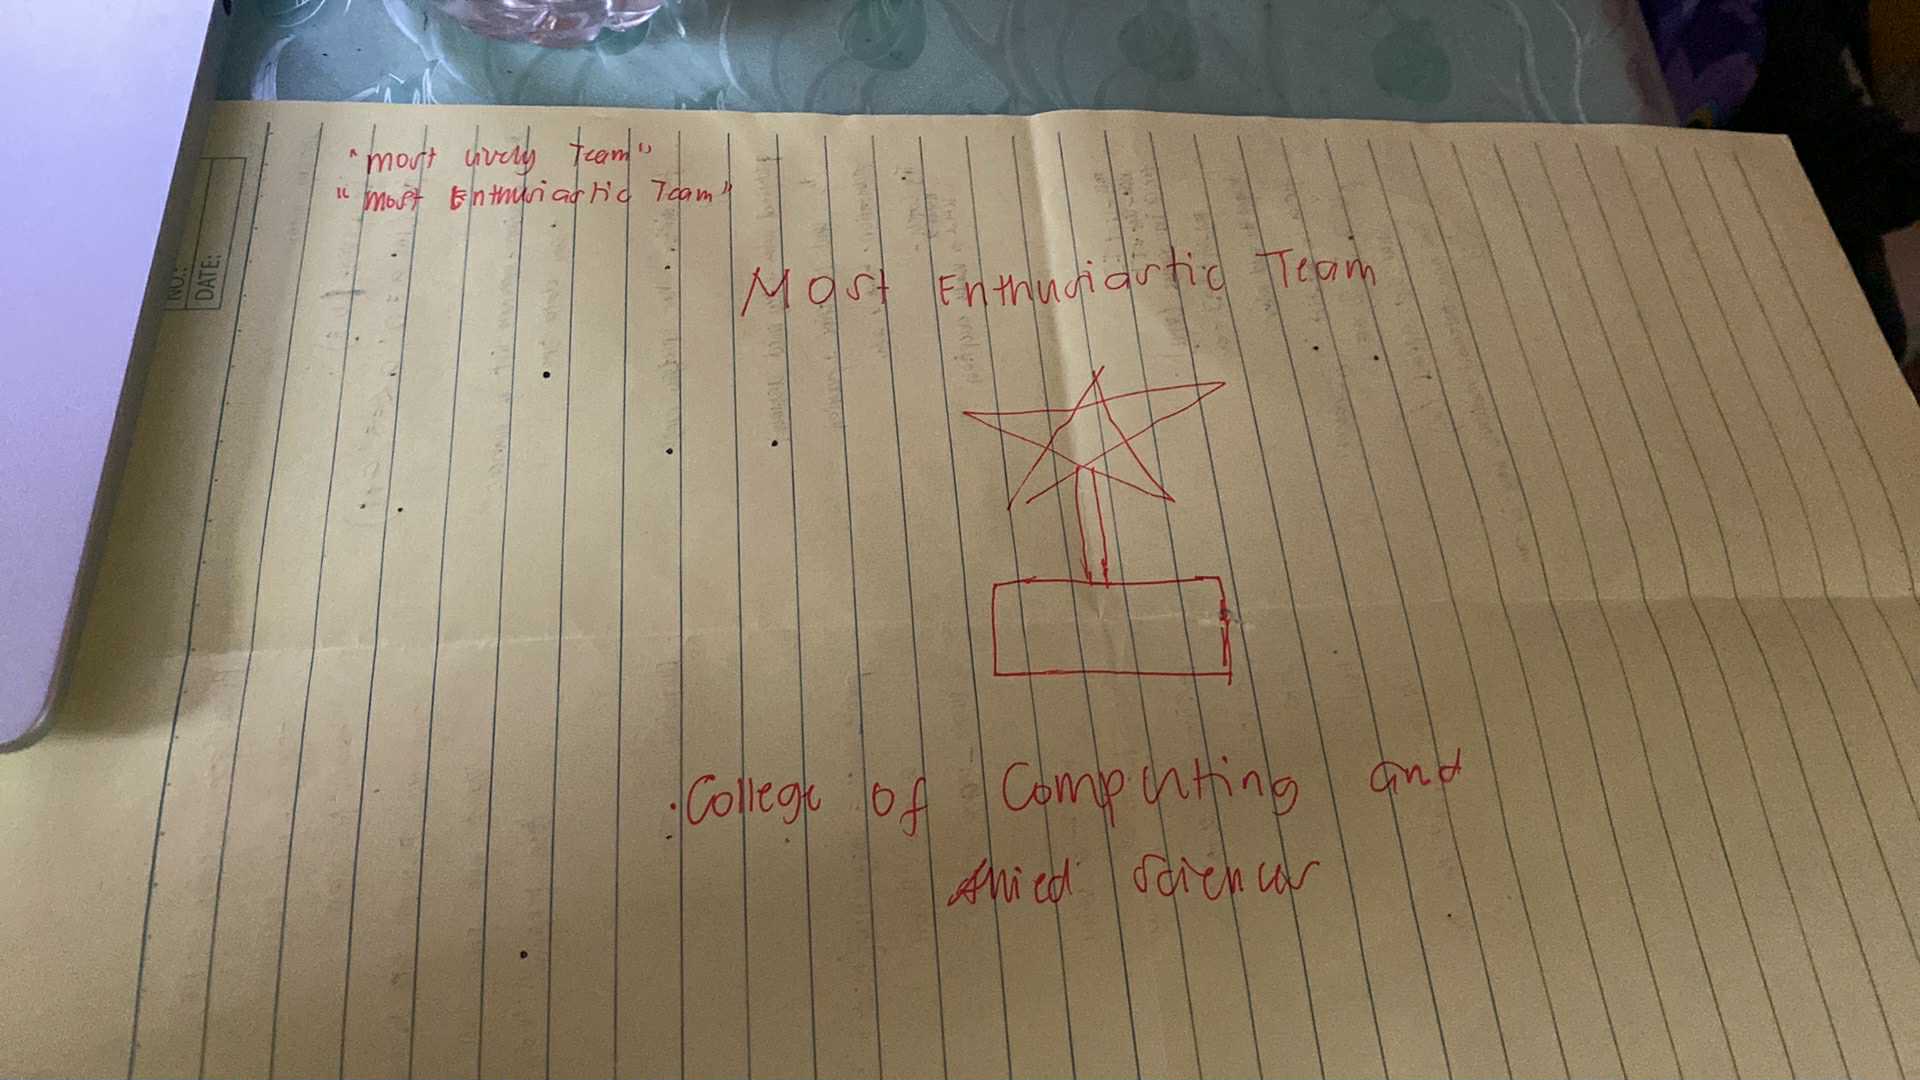 "most lively Team"
"most Enthusiastic Team"
Most Enthusiastic Team
College of Computing and
Allied Sciences
NO.:
DATE: